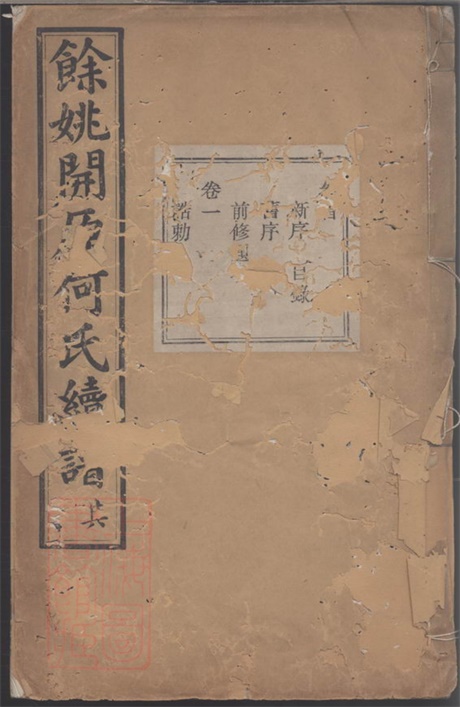 餘姚開何氏續譜
卷首
新序 目錄
舊序
前修
卷一
誥勅